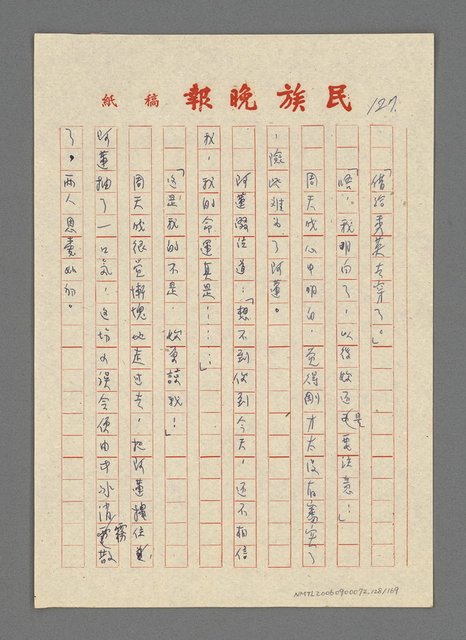 民族晚報 稿紙
127.
「借給秀英去穿了。」
「唔！我明白了，以後妳還是要注意！」
周天成心中明白，覺得剛才太沒有審實了
，險些難為了阿蓮。
阿蓮啜泣道：「想不到你到今天，還不相信
我，我的命運真是……」
「這是我的不是，妳要諒我！」
周天成很覺慚愧地走过去，把阿蓮摟住，
阿蓮抽了一口气，這場誤会便由中冰消霧散
了。两人恩愛如初。
NMTL20060900092_128/169